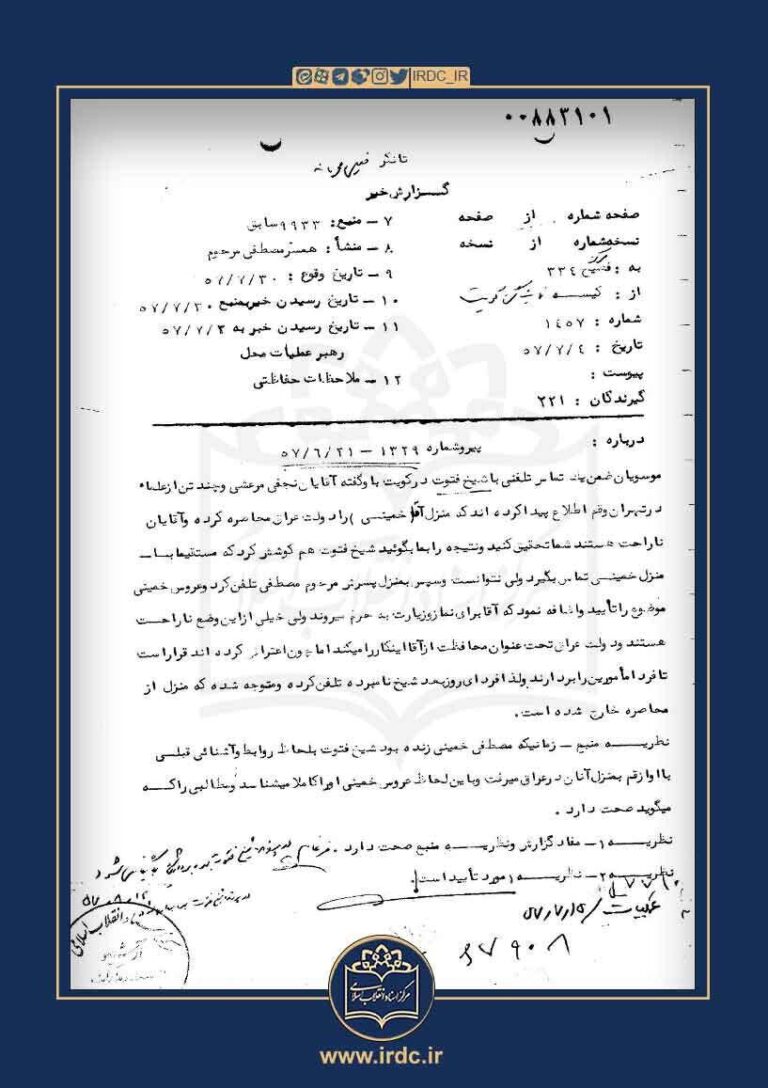 IRDC_IR
۰۰۸۸۳۱۰۱
گـزارش خبر
صفحه شماره از صفحه
نسخه شماره از نسخه
به : ۳۳۴
از : کویت
شماره : ۱۴۵۷
تاریخ : ۵۷/۷/۴
پیوست :
گیرندگان : ۲۲۱
۷ – منبع : ۹۹۳۳ سابق
۸ – منشأ : همسر مصطفی مرحوم
۹ – تاریخ وقوع : ۵۷/۷/۳۰
۱۰ – تاریخ رسیدن خبر به منبع ۵۷/۷/۳۰
۱۱ – تاریخ رسیدن خبر به ۵۷/۷/۲
رهبر عملیات محل
۱۲ – ملاحظات حفاظتی
درباره : پیرو شماره ۱۳۲۹ – ۵۷/۶/۲۱
موسویان ضمن یک تماس تلفنی با شیخ فتوت در کویت با وگفته آقایان نجفی مرعشی و چند تن از علماء
در تهران وقم اطلاع پیدا کرده اند که منزل آقا (خمینی) را دولت عراق محاصره کرده و آقایان
ناراحت هستند شما تحقیق کنید و نتیجه را بما بگوئید شیخ فتوت هم کوشش کرد که مستقیما بـا
منزل خمینی تماس بگیرد ولی نتوانست وسپس بمنزل پسرش مرحوم مصطفی تلفن کرد و عروس خمینی
موضوع را تأیید و اضافه نمود که آقا برای نماز و زیارت به حرم میروند ولی خیلی از این وضع ناراحت
هستند و دولت عراق تحت عنوان محافظت از آقا اینکار را میکند اما چون اعتراض کرده اند قرار است
تا فردا مأمورین را بردارند ولذا فردای روز بعد شیخ نامبرده تلفن کرده و متوجه شده که منزل از
محاصره خارج شده است .
نظریـــه منبع – زمانیکه مصطفی خمینی زنده بود شیخ فتوت بلحاظ روابط و آشنائی قبلـی
با او از قم بمنزل آنان در عراق میرفت و باین لحاظ عروس خمینی او را کاملا میشناسد و مطالبی را کـه
میگوید صحت دارد .
نظریـــه ۱– مفاد گزارش و نظریـــه منبع صحت دارد .
نظریـــه ۲– نظریـــه ۱ مورد تأیید است
عملیات
۳۷۹۰۸
مرکز اسناد انقلاب اسلامی
www.irdc.ir